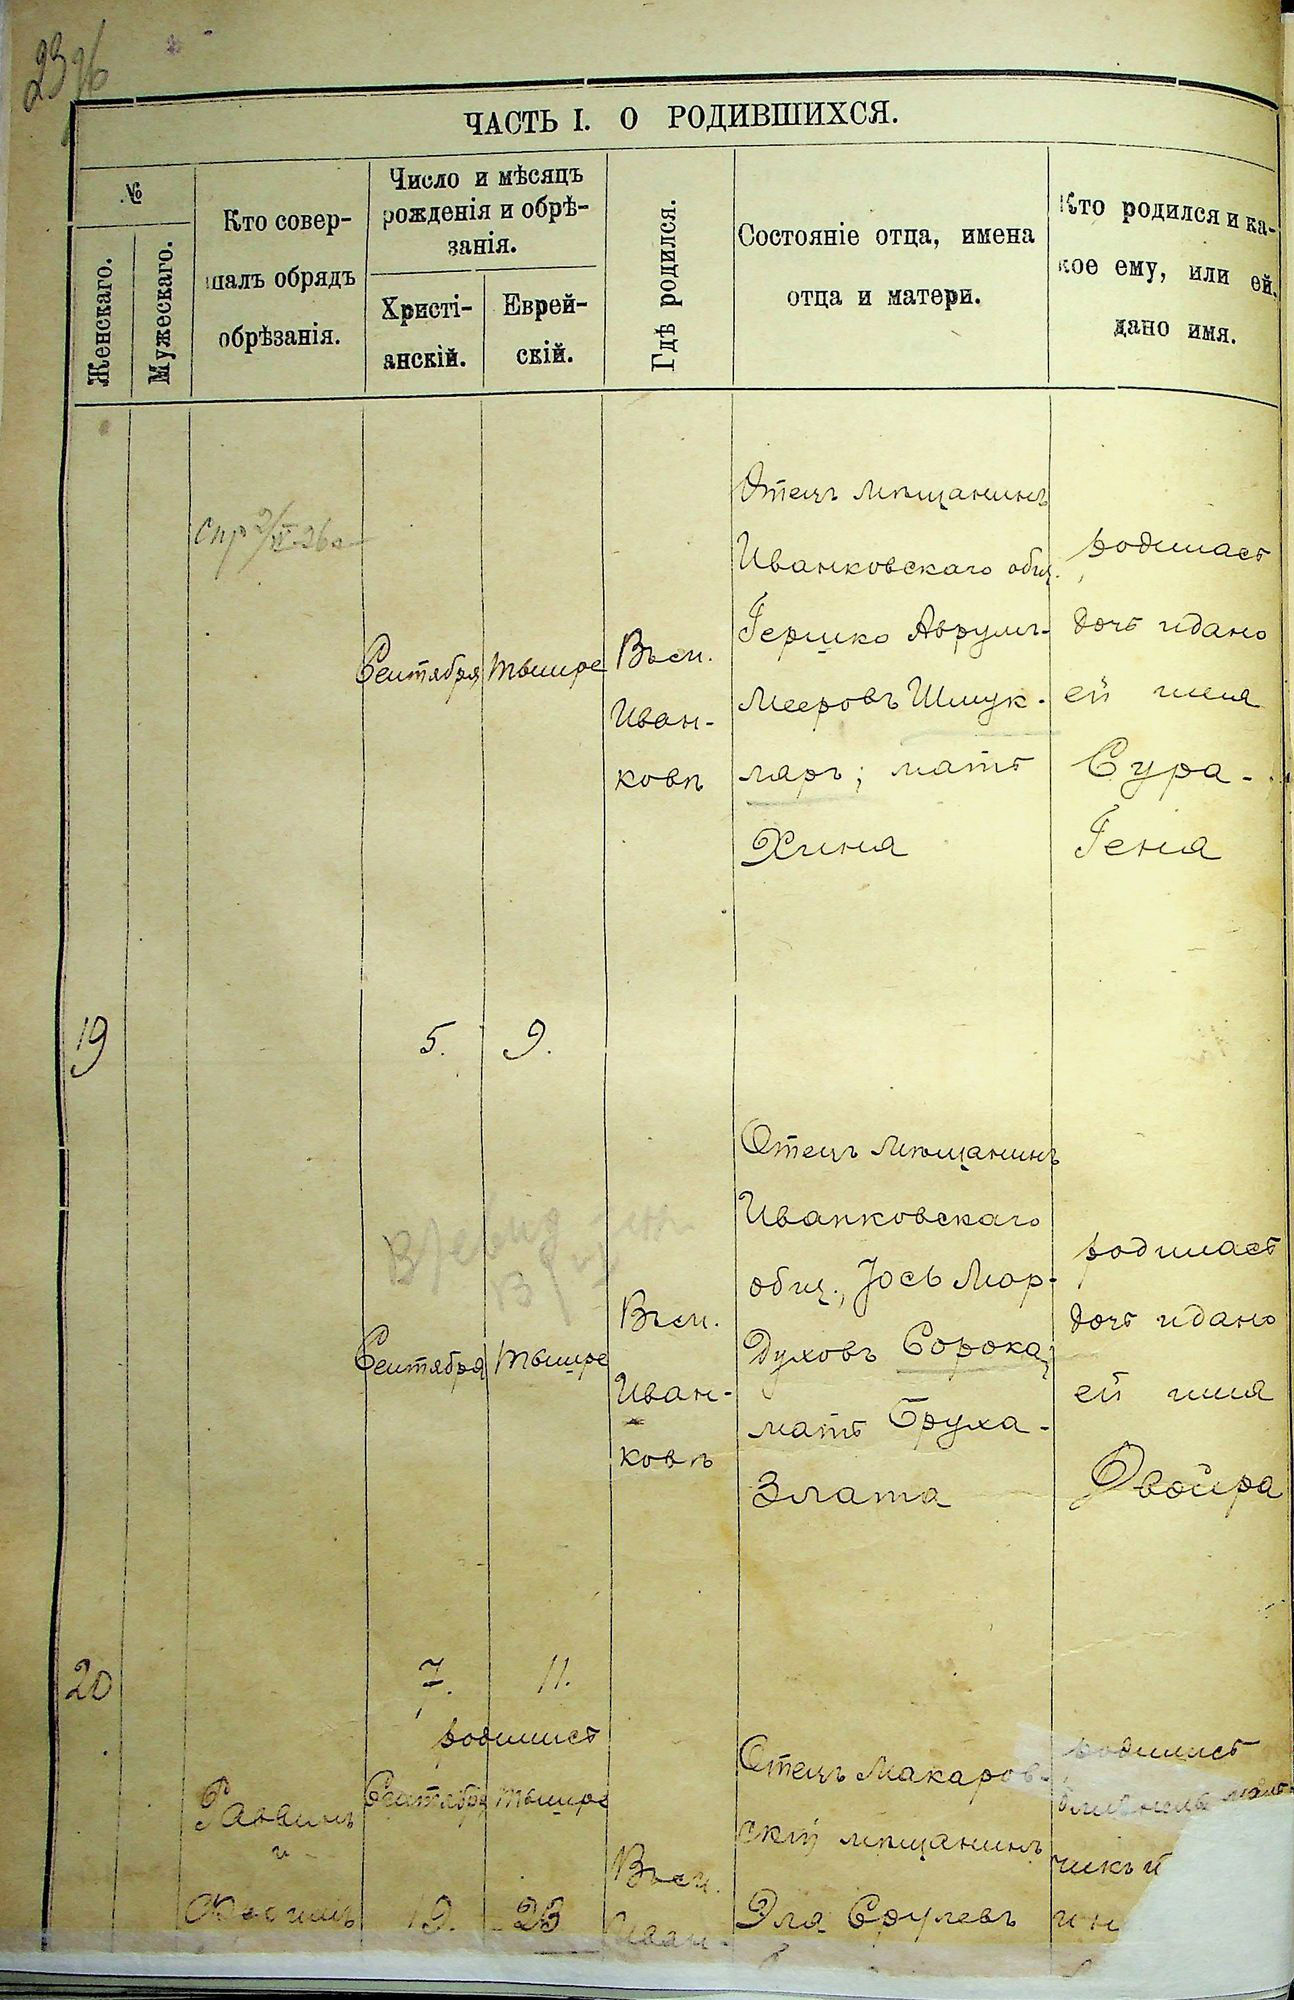 2396
ЧАСТЬ I. О РОДИВШИХСЯ.
№
Женскаго.
Мужескаго.
Кто совер-
шалъ обрядъ
обрѣзанія.
Число и мѣсяцъ
рожденія и обрѣ-
занія.
Христі-
анскій.
Еврей-
скій.
Гдѣ родился.
Состояніе отца, имена
отца и матери.
Кто родился и ка-
кое ему, или ей,
дано имя.
19
Сентября
5.
Тышре
9.
Въ м.
Иван-
ковѣ
Отецъ мѣщанинъ
Иванковскаго общ.
Гершко Аврумъ-
Мееровъ Шмук-
ляръ; мать
Хиня
родилась
дочь и дано
ей имя
Сура-
Геня
20
Сентября
7.
Тышре
11.
Въ м.
Иван-
ковѣ
Отецъ мѣщанинъ
Иванковскаго
общ., Іось Мор-
духовъ Сорока;
мать Бруха-
Злата
родилась
дочь и дано
ей имя
Двойра
Раввинъ
и
родились
Сентября
19.
Тышре
23
Въ м.
Иван-
Отецъ Макаров-
скій мѣщанинъ
Эля Срулевъ
родились
чикъ и